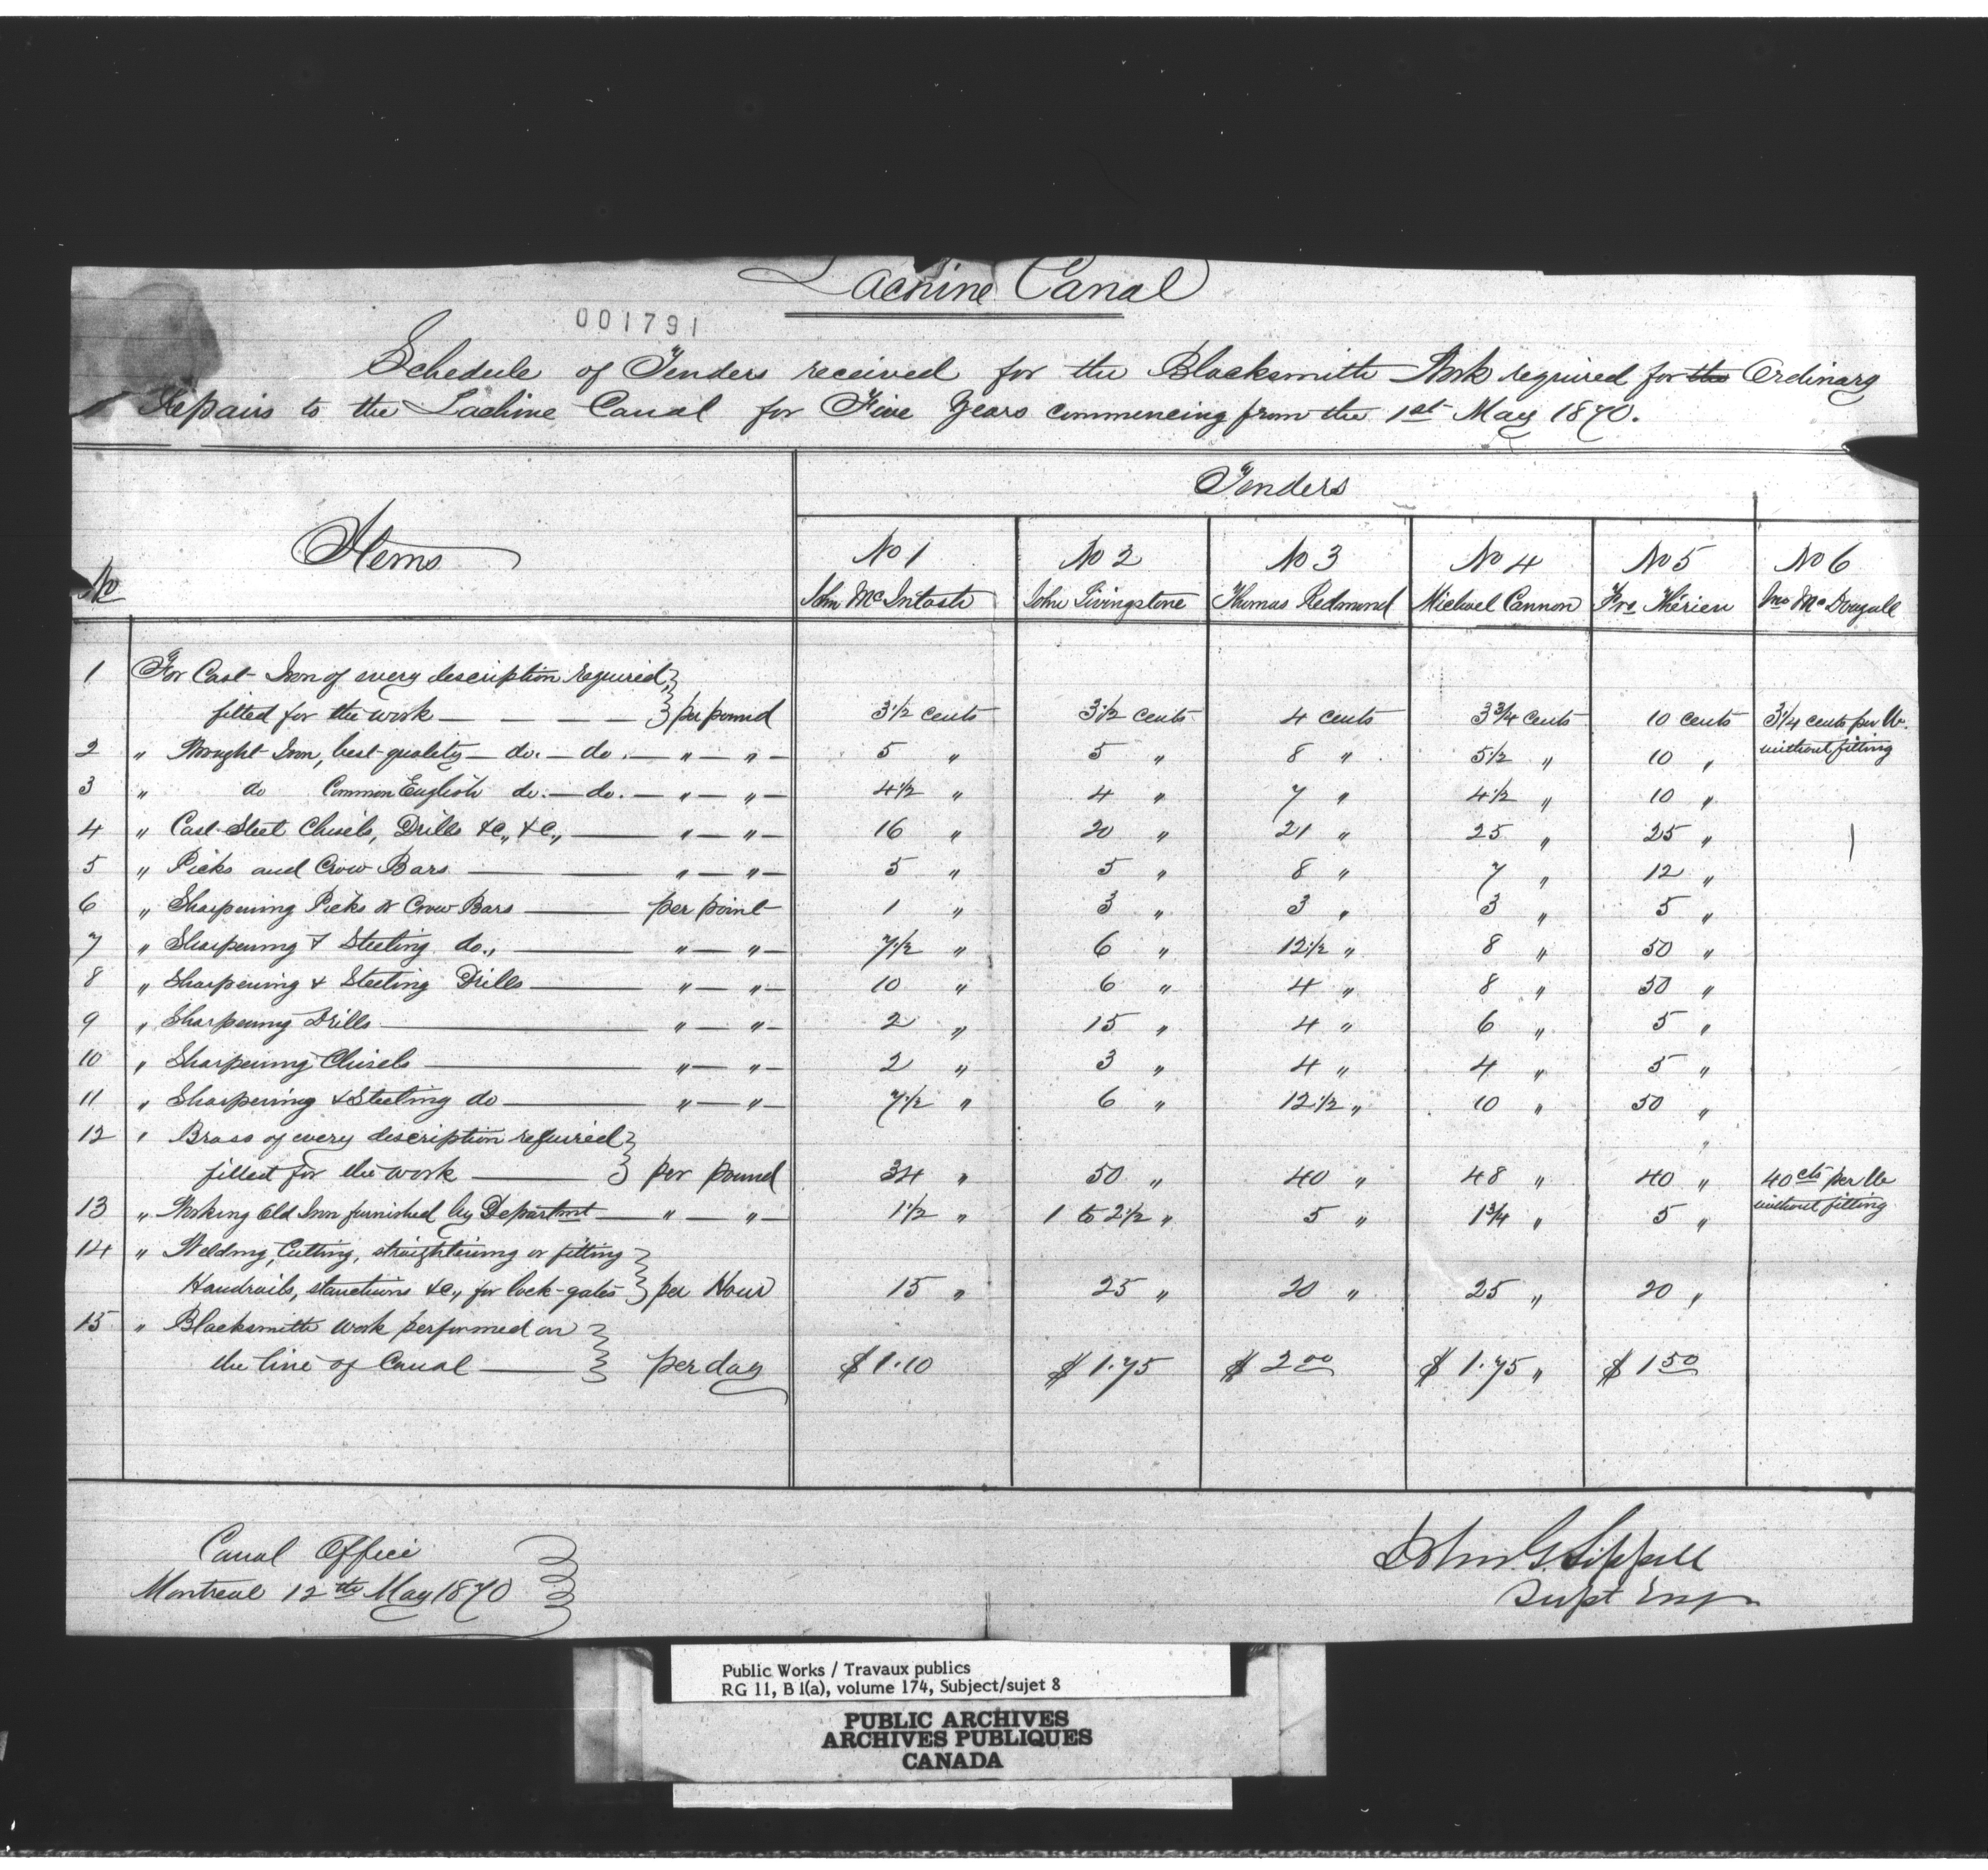 Lachine Canal
001791
Schedule of Tenders received for the Blacksmith Work required for the Ordinary
Repairs to the Lachine Canal for Five Years commencing from the 1st May 1870.
Tenders
Items
No
No 1 No 2 No 3 No 4 No 5 No 6
John McIntosh John Livingstone Thomas Redmond Michael Cannon Frs Thérien Jno McDougall
1 For Cast Iron of every description required,
fitted for the work — — — — per pound 3 1/2 cents 3 1/2 cents 4 cents 3 3/4 cents 10 cents 3 1/4 cents per lb.
without fitting
2 " Wrought Iron, best quality — do. — do. — " — " — 5 " 5 " 8 " 5 1/2 " 10 "
3 " do Common English do. — do. — " — " — 4 1/2 " 4 " 7 " 4 1/2 " 10 "
4 " Cast Steel Chisels, Drills &c., &c., — " — " — 16 " 20 " 21 " 25 " 25 "
5 " Picks and Crow Bars — — " — " — 5 " 5 " 8 " 7 " 12 "
6 " Sharpening Picks or Crow Bars — per point 1 " 3 " 3 " 3 " 5 "
7 " Sharpening & Steeling do., — " — " — 7 1/2 " 6 " 12 1/2 " 8 " 50 "
8 " Sharpening & Steeling Drills — " — " — 10 " 6 " 4 " 8 " 50 "
9 " Sharpening Drills — " — " — 2 " 15 " 4 " 6 " 5 "
10 " Sharpening Chisels — " — " — 2 " 3 " 4 " 4 " 5 "
11 " Sharpening & Steeling do — " — " — 7 1/2 " 6 " 12 1/2 " 10 " 50 "
12 " Brass of every description required "
fitted for the work — per pound 34 " 50 " 40 " 48 " 40 " 40 cts per lb
without fitting
13 " Working Old Iron furnished by Departmt — " — " — 1 1/2 " 1 to 2 1/2 " 5 " 1 3/4 " 5 "
14 " Welding, Cutting, straightening or fitting
Handrails, stanctions &c., for lock-gates per Hour 15 " 25 " 20 " 25 " 20 "
15 " Blacksmith work performed on
the line of Canal — per day $1.10 $1.75 $2 00 $1.75 " $1 50
Canal Office
Montreal 12th May 1870
John G. Sippell
Supt Engr
Public Works / Travaux publics
RG 11, B 1(a), volume 174, Subject/sujet 8
PUBLIC ARCHIVES
ARCHIVES PUBLIQUES
CANADA